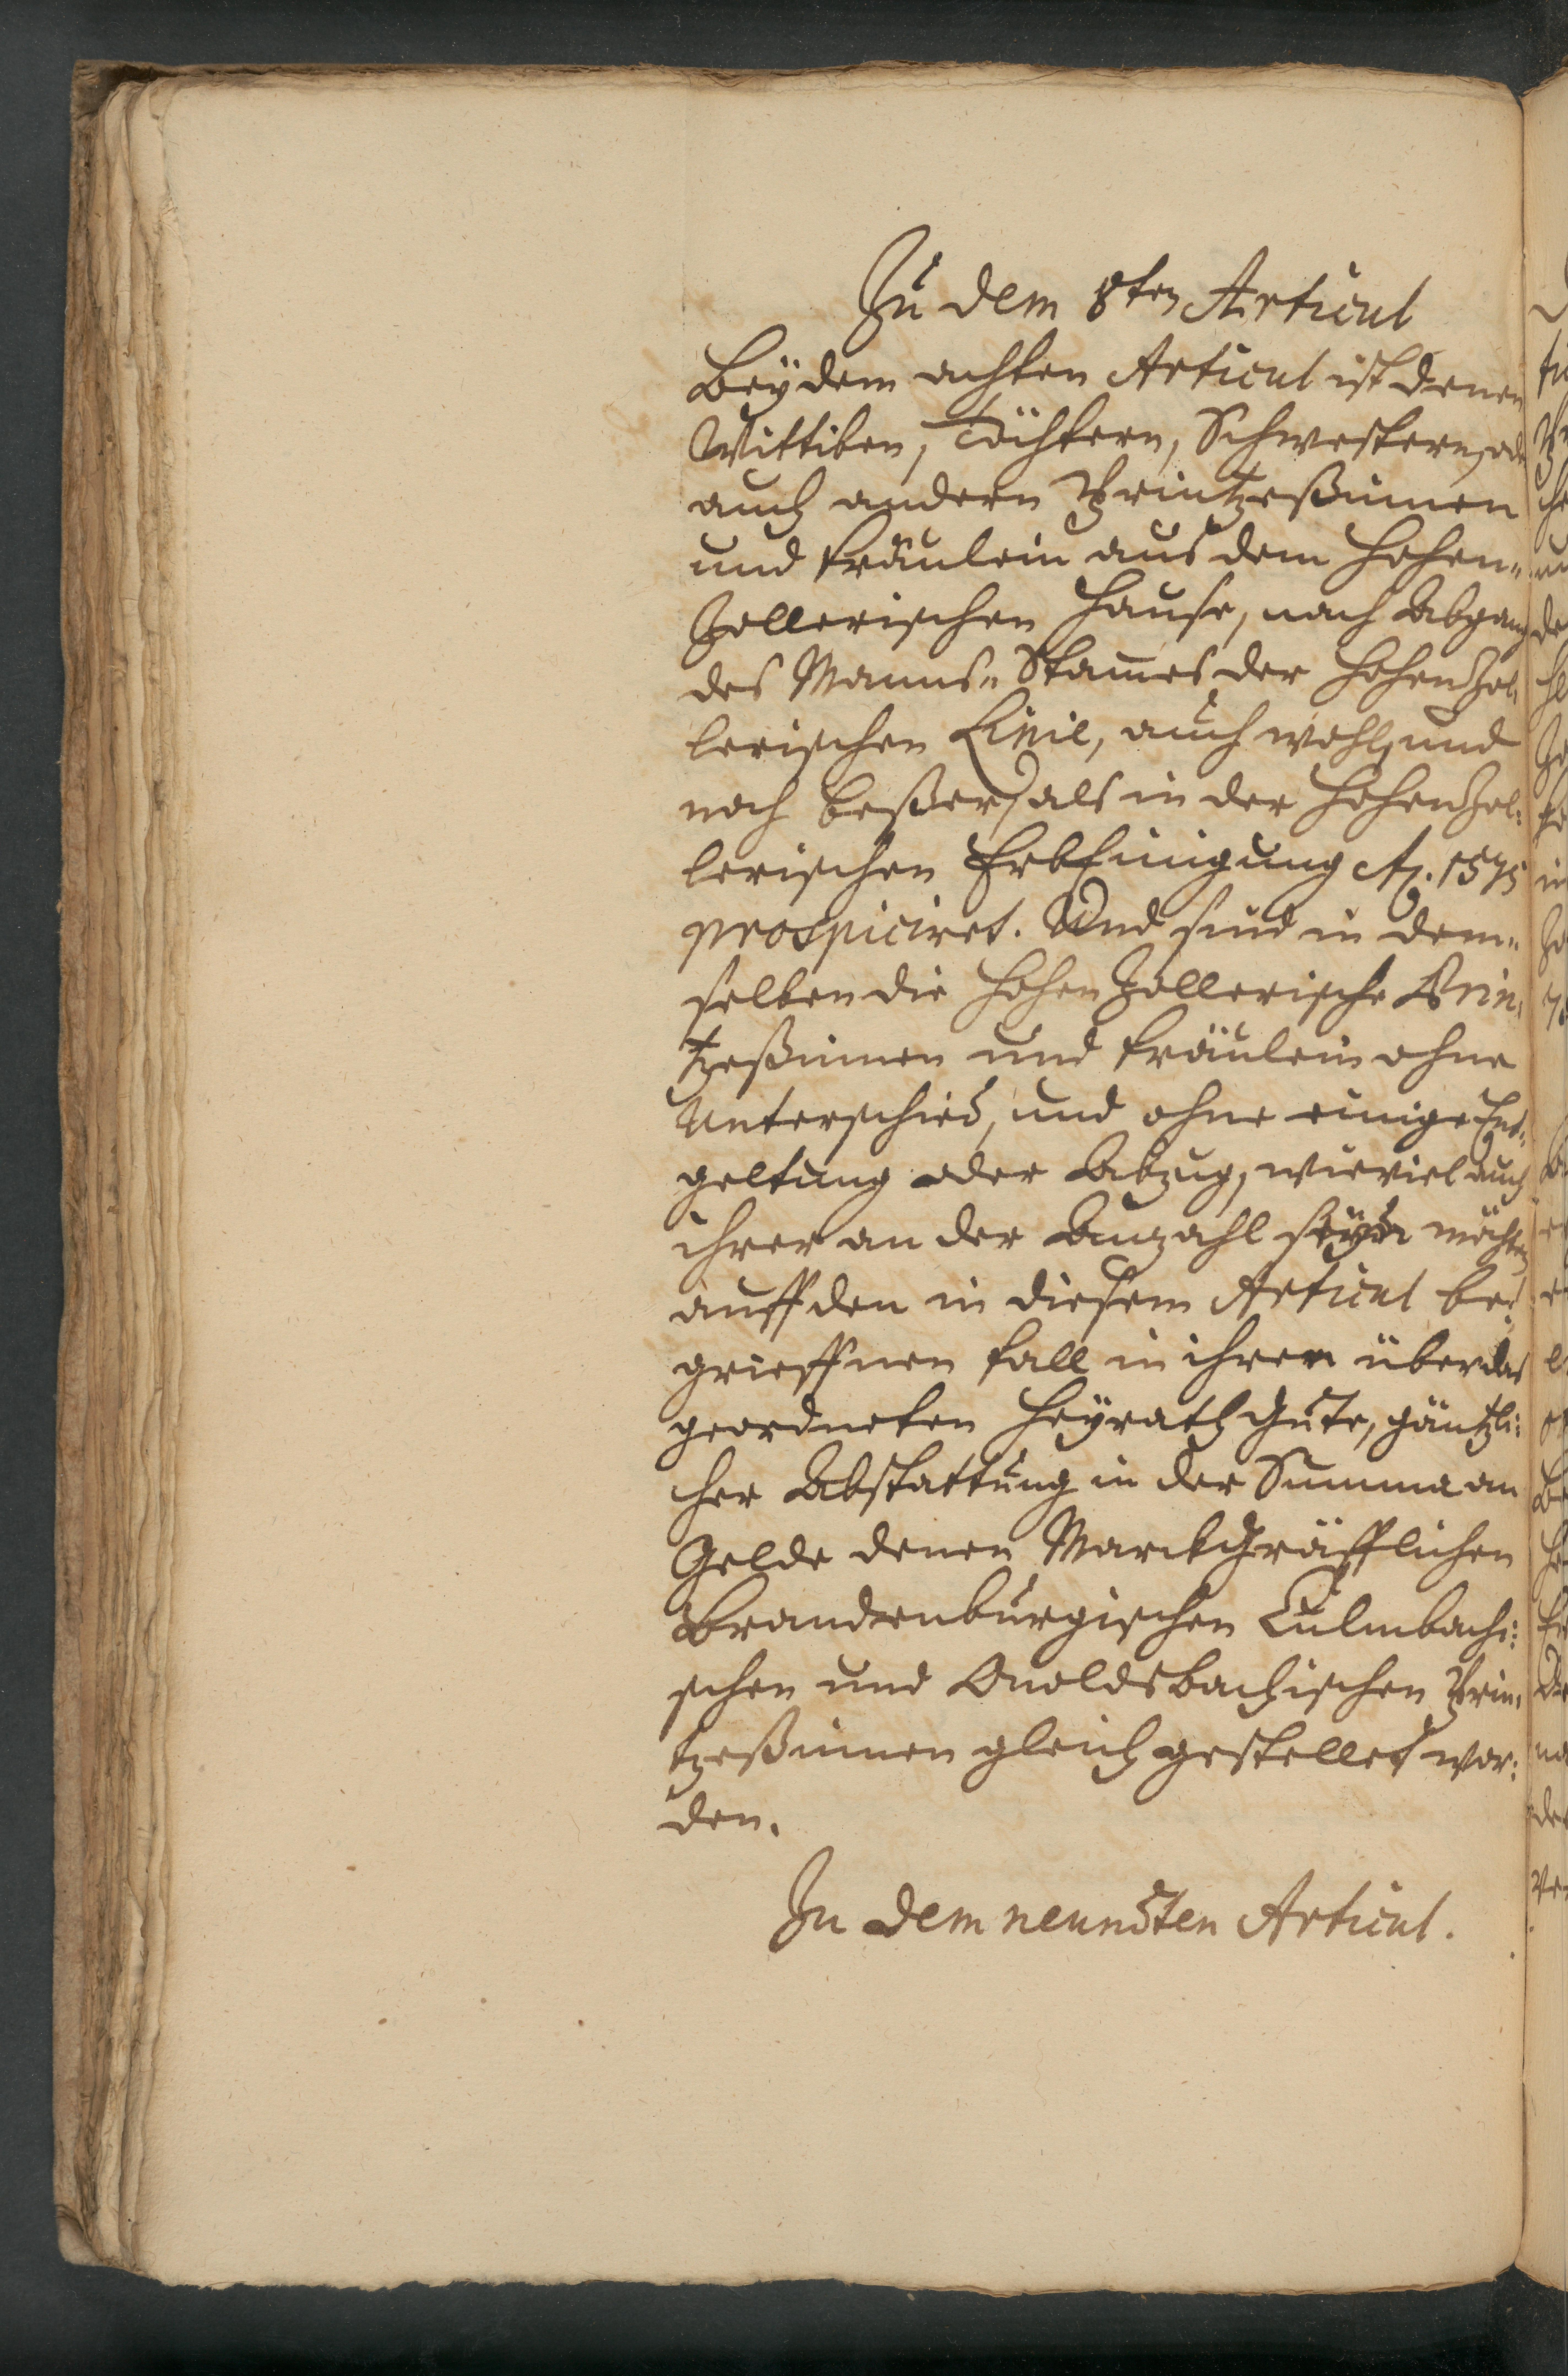 Zu dem 8ten Articul
Bey dem achten Articul ist denen
Wittiben, Töchtern, Schwestern, od.
auch andern Printzeßinnen
und Fräulein aus dem Hohen-
Zollerischen Hause, nach Abgang
des Manns-Stames der HohenZol-
lerischen Linie, auch wohl, und
noch beßer, als in der HohenZol-
lerischen ErbEinigung Ao. 1575
prospiciret. Und sind in dem-
selben die HohenZollerische Prin-
tzeßinnen und Fräulein ohne
Unterschied, und ohne einige Ent-
geltung oder Abzug, wieviel auch
ihrer an der Anzahl seyn möchten
auff den in diesem Articul be-
grieffnen Fall in ihrer über das
geordneten HeyrathGute, gäntzli-
cher Abstattung in der Summa an
Gelde denen MarckGräfflichen
Brandenburgischen Culmbachi-
schen und Onoldsbachischen Prin-
tzeßinnen gleich gestellet wor-
den.
Zu dem neundten Articul.